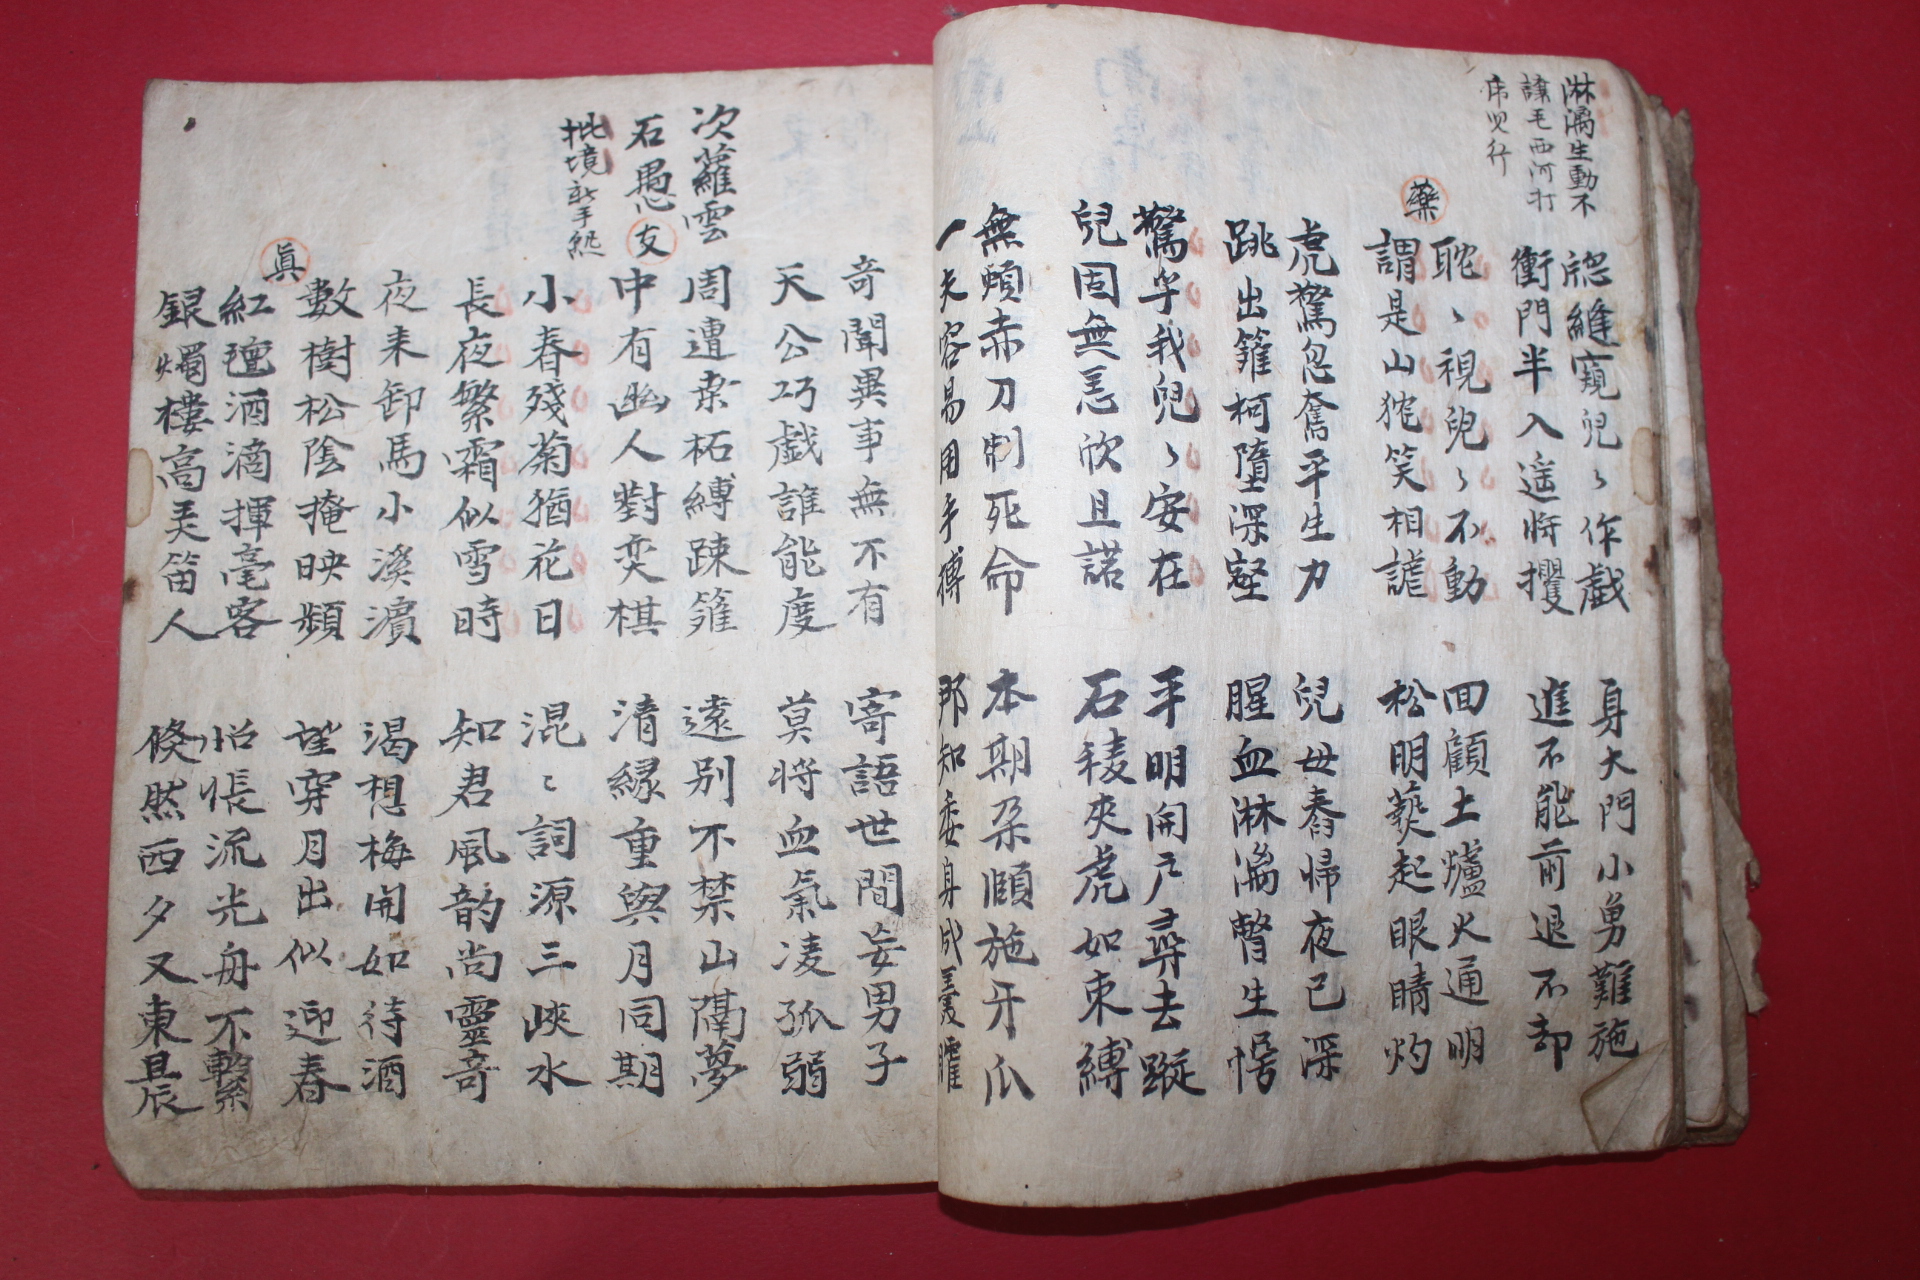 淋漓生動不
讓毛西河打
虎兒行
窓縫窺兒〻作戱
身大門小勇難施
衝門半入遥將攫
進不能前退不却
耽〻視兒〻不動
回顧土爐火通明
藥
謂是山狵笑相謔
松明爇起眼睛灼
虎驚忽奮平生力
兒母舂歸夜已深
跳出籬柯墮深壑
腥血淋漓瞥生愕
驚乎我兒〻安在
平明開户尋去蹤
兒固無恙欣且諾
石稜夾虎如束縛
無煩赤刀制死命
本期朶頤施牙爪
一夫容易用手搏
那知委身成羹臛
奇聞異事無不有
寄語世間妄男子
天公巧戱誰能度
莫將血氣凌孤弱
次蘿雲
周遭柰柘縛疎籬
遠別不禁山隔夢
石愚
友
中有幽人對奕棋
清緣重與月同期
批境
小春殘菊猶花日
混〻詞源三峽水
長夜繁霜似雪時
知君風韵尚靈奇
夜来卸馬小溪濱
渴想梅開如待酒
數樹松陰掩映頻
望穿月出似迎春
眞
紅氊酒滴揮毫客
怊悵流光舟不繫
銀燭樓高美笛人
倏然西夕又東晨